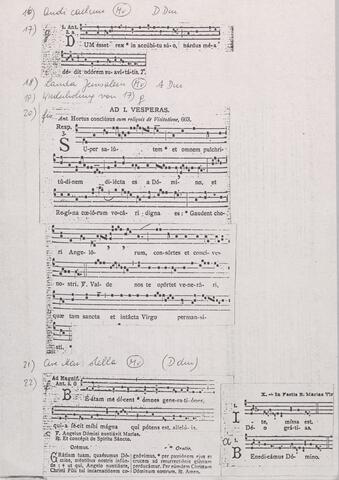 16) Audi caelum (Mv) D Dm
17) 1. Ant.
3. a
DUM esset rex * in accúbitu súo, nárdus mé-a
dé-dit odórem su-a-vi-tá-tis. T.
18) Lauda Jerusalem (Mv) A Dm
19) Wiederholung von 17)
20)
AD I. VESPERAS.
Ant. Hortus conclúsus cum reliquis de Visitatione, 603.
Resp.
3.
SUper sa-lú- tem * et omnem pulchri-
tú-di-nem di-lécta es a Dó- mi- no, et
Re-gí-na cœ-ló-rum vo-cá- ri digna es: * Gaudent cho-
ri Ange-ló- rum, con-sór-tes et concí-ve-
no-stri. V. Val-de nos te opórtet ve-ne-rá- ri,
quæ tam sancta et intácta Virgo perman-sí-
sti.
21) Ave maris stella (Mv) (D dm)
22)
Ad Magnif.
Ant. 2. D
BE-átam mé dícent * ómnes gene-ra-ti-ónes,
qui-a fé-cit míhi mágna qui pótens est, allelú-ia.
V. Angelus Dómini nuntiávit Maríæ.
R. Et concépit de Spíritu Sancto.
Orémus. Oratio.
GRátiam tuam, quǽsumus Dó-
mine, méntibus nostris infún-
de : ut qui, Angelo nuntiánte,
Christi Fílii tui incarnatiónem co-
gnóvimus, * per passiónem ejus et
crucem ad resurrectiónis glóriam
perducámur. Per eúmdem Christum
Dóminum nostrum. R. Amen.
X. — In Festis B. Mariae Vir
1.
I- te, missa est.
De- o grá- ti- as.
BEnedicámus Dómi- no.